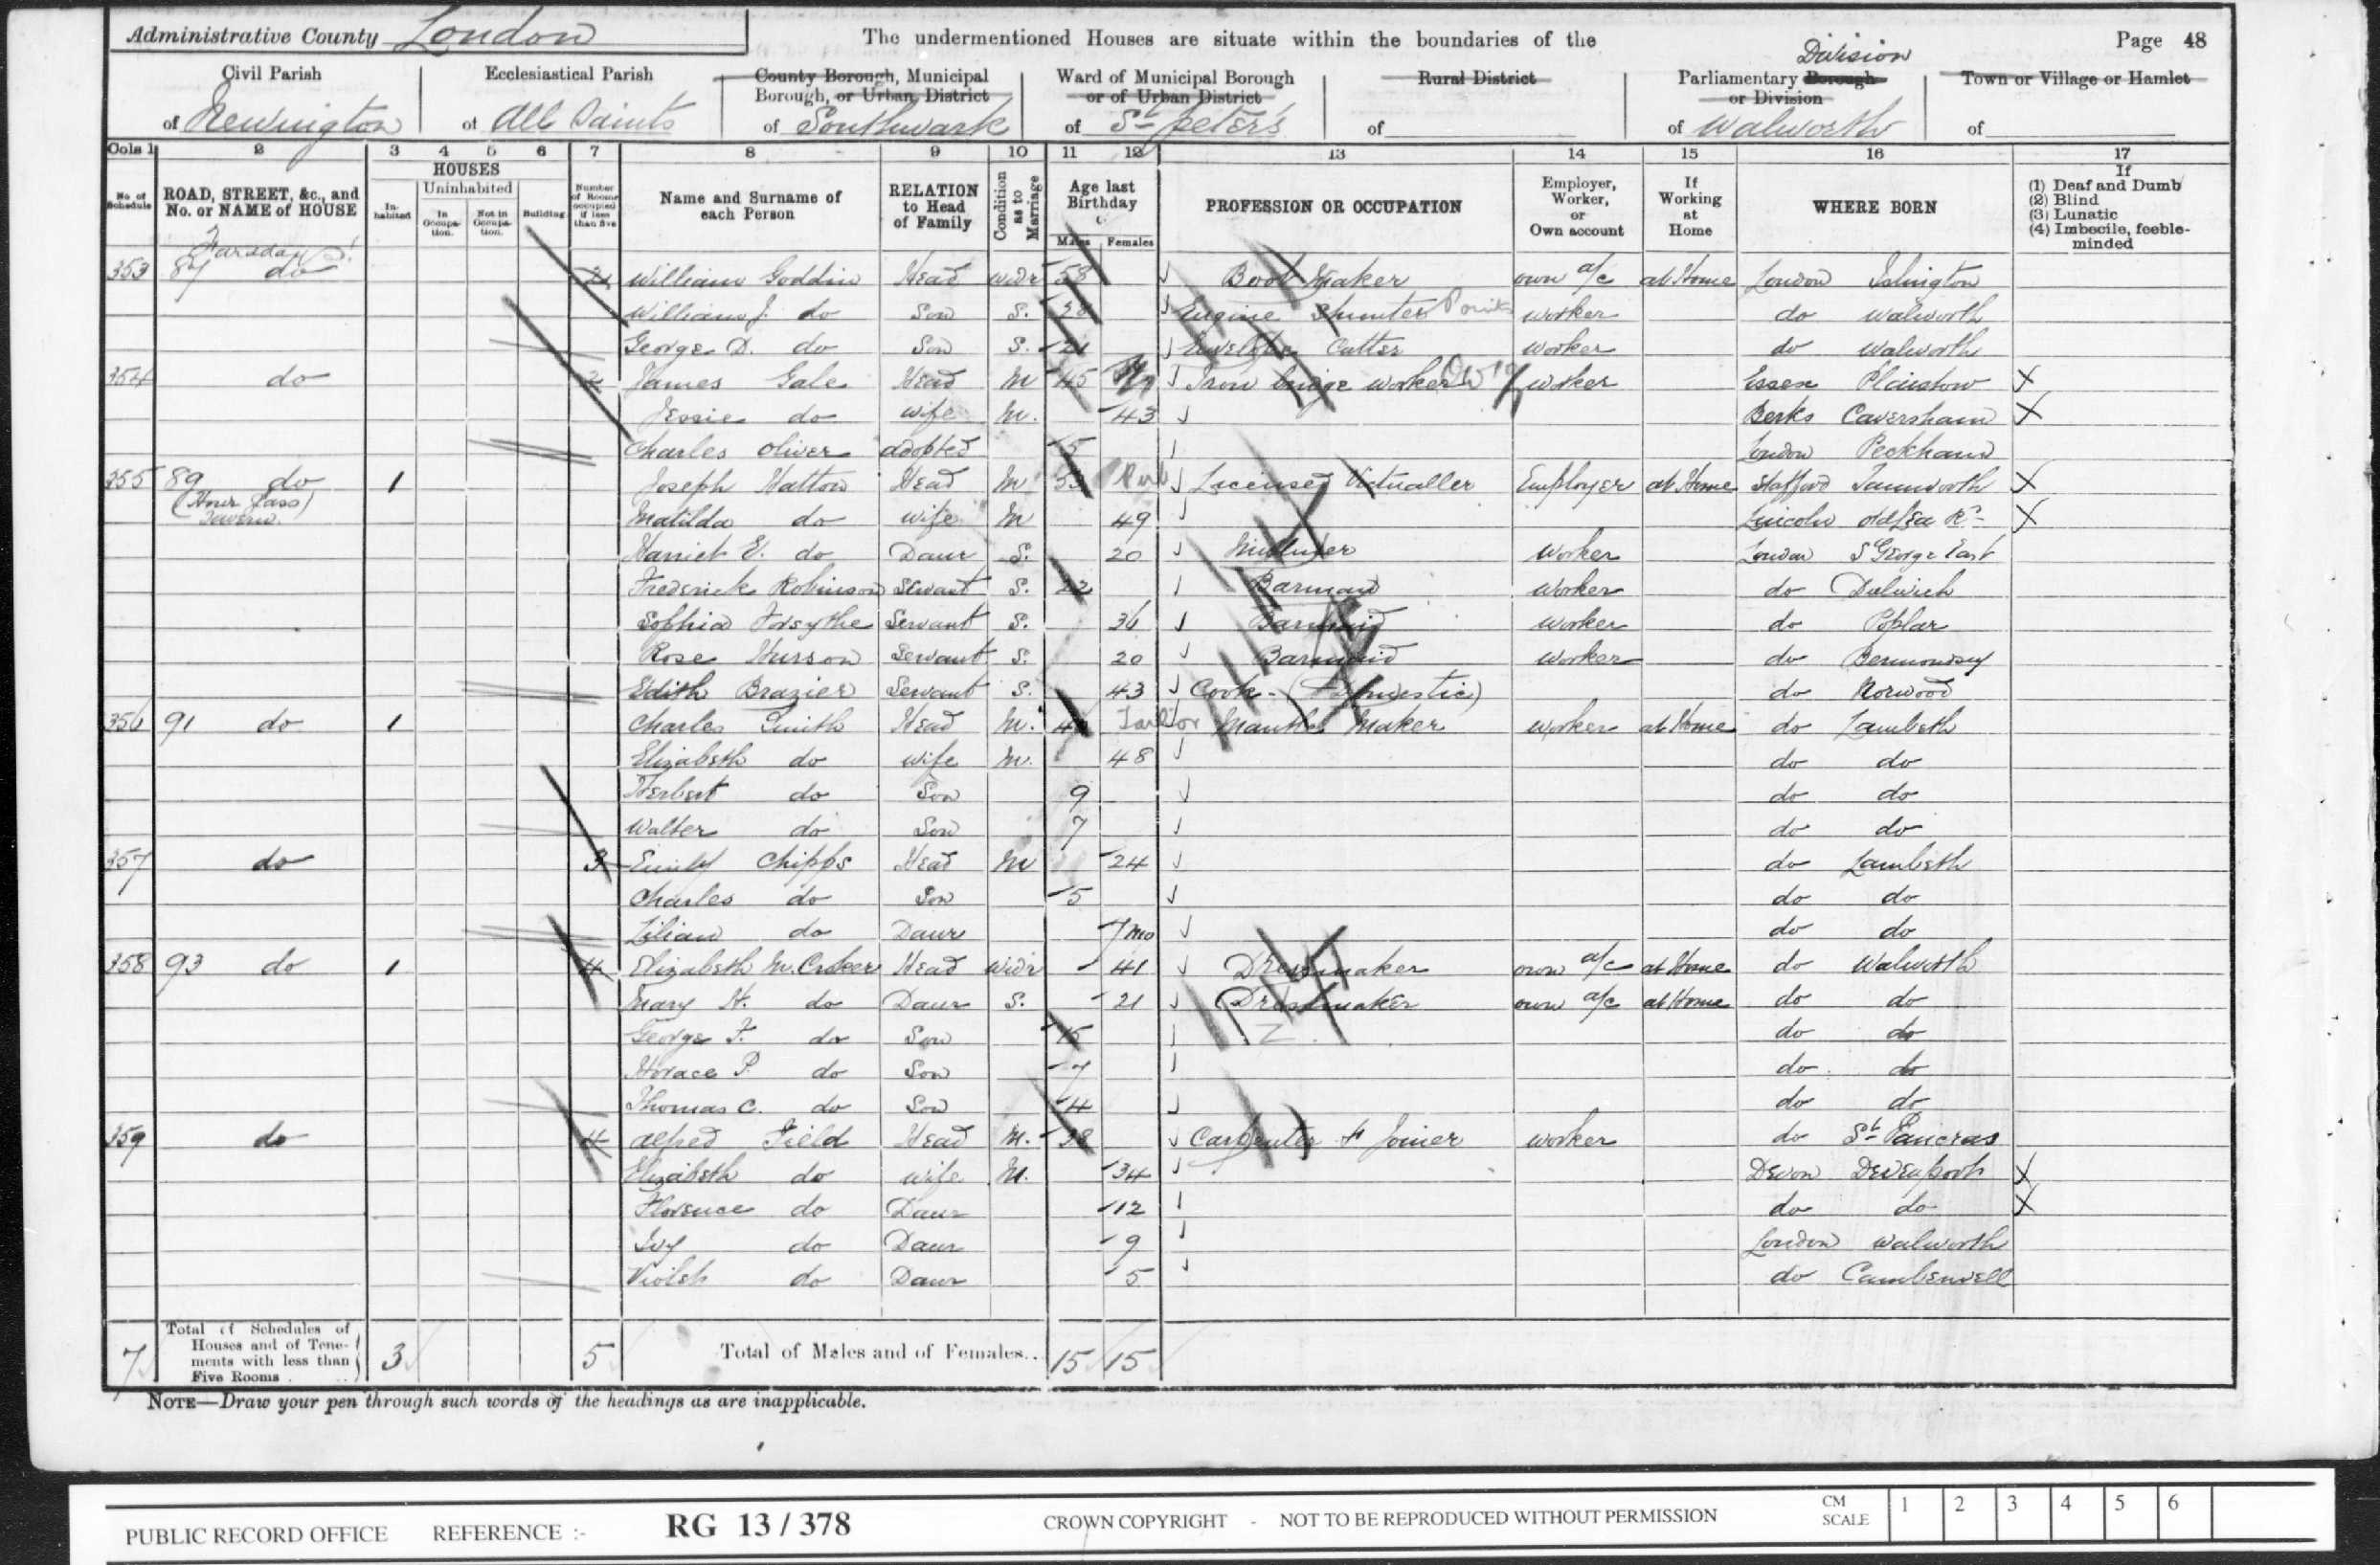 Administrative County London The undermentioned Houses are situate within the boundaries of the Page 48
Civil Parish Ecclesiastical Parish County Borough, Municipal Borough, or Urban District Ward of Municipal Borough or of Urban District Rural District Parliamentary Borough Division or Division Town or Village or Hamlet
of Newington of All Saints of Southwark of St Peter's of of Walworth of
Cols 1 2 3 4 5 6 7 8 9 10 11 12 13 14 15 16 17
No. of Schedule ROAD, STREET, &c., and No. or NAME of HOUSE HOUSES Inhabited Uninhabited In Occupation. Not in Occupation. Building Number of Rooms occupied if less than five Name and Surname of each Person RELATION to Head of Family Condition as to Marriage Age last Birthday Males Females PROFESSION OR OCCUPATION Employer, Worker, or Own account If Working at Home WHERE BORN If (1) Deaf and Dumb (2) Blind (3) Lunatic (4) Imbecile, feeble-minded
Faraday St
353 87 do 2 William Goddin Head widr 58 Boot Maker own a/c at Home London Islington
William J. do Son S. 28 Engine Shunter Points worker do Walworth
George D. do Son S. 21 Envelope Cutter worker do Walworth
354 do 2 James Gale Head M 45 Iron bridge worker worker Essex Plaistow X
Jessie do wife M. 43 Berks Caversham X
Charles Oliver adopted 5 London Peckham
355 89 do 1 Joseph Hatton Head M 53 Pub Licensed Victualler Employer at Home Stafford Tamworth X
(Hour Glass) Tavern. Matilda do wife M 49 Lincoln X
Harriet E. do Daur S. 20 Milliner Worker London S George East
Frederick Robinson Servant S. 22 Barman Worker do Dulwich
Sophia Forsythe Servant S. 36 Barmaid worker do Poplar
Rose Hurson Servant S. 20 Barmaid worker do Bermondsey
Edith Brazier Servant S. 43 Cook - (Domestic) do Norwood
356 91 do 1 Charles Smith Head M. Tailor Mantle Maker worker at Home do Lambeth
Elizabeth do wife M. 48 do do
Herbert do Son 9 do do
Walter do Son 7 do do
357 do 3 Emily Chipps Head M 24 do Lambeth
Charles do Son 5 do do
Lilian do Daur 7 mo do do
358 93 do 1 4 Elizabeth M. Croker Head widr 41 Dressmaker own a/c at Home do Walworth
Mary H. do Daur S. 21 Dressmaker own a/c at Home do do
George F. do Son 15 do do
Horace P. do Son 7 do do
Thomas C. do Son 4 do do
359 do 4 Alfred Field Head M. 38 Carpenter & Joiner worker do St Pancras
Elizabeth do wife M. 34 Devon Devenport X
Florence do Daur 12 do do X
Ivy do Daur 9 London Walworth
Violet do Daur 5 do Camberwell
7 Total of Schedules of Houses and of Tenements with less than Five Rooms 3 5 Total of Males and of Females.. 15 15
NOTE—Draw your pen through such words of the headings as are inapplicable.
PUBLIC RECORD OFFICE REFERENCE :- RG 13 / 378 CROWN COPYRIGHT - NOT TO BE REPRODUCED WITHOUT PERMISSION CM SCALE 1 2 3 4 5 6